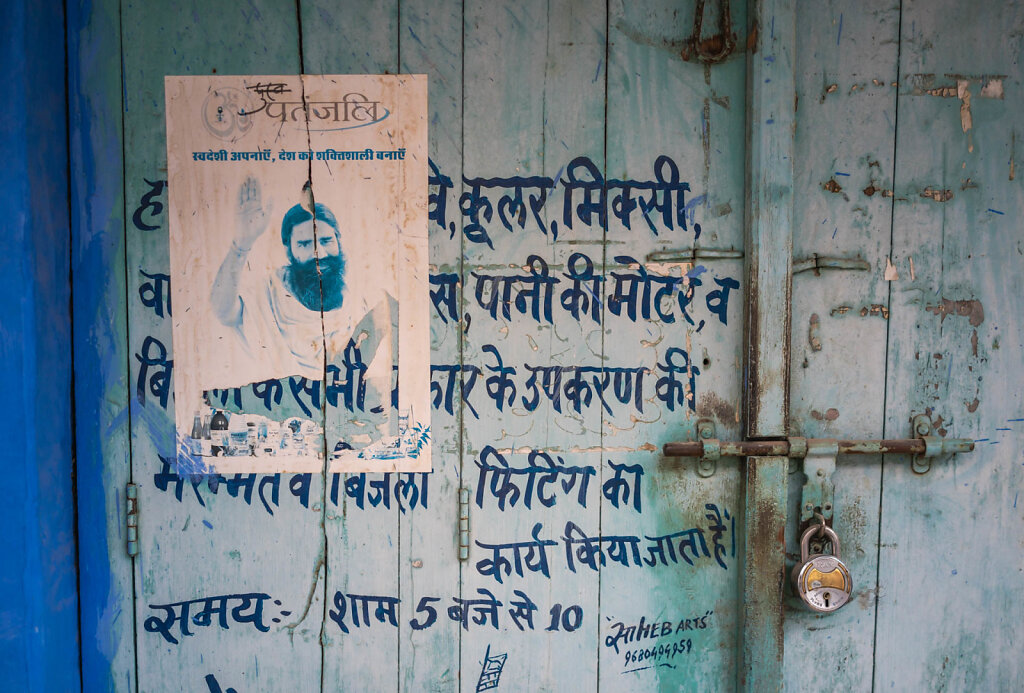 पतंजलि
स्वदेशी अपनाएँ, देश को शक्तिशाली बनाएँ
वे, कूलर, मिक्सी,
स, पानी की मोटर, व
के सभी कार के उपकरण की
मरम्मत व बिजली फिटिंग का
कार्य किया जाता है।
समय:- शाम 5 बजे से 10
"साHEB ARTS"
9680494959